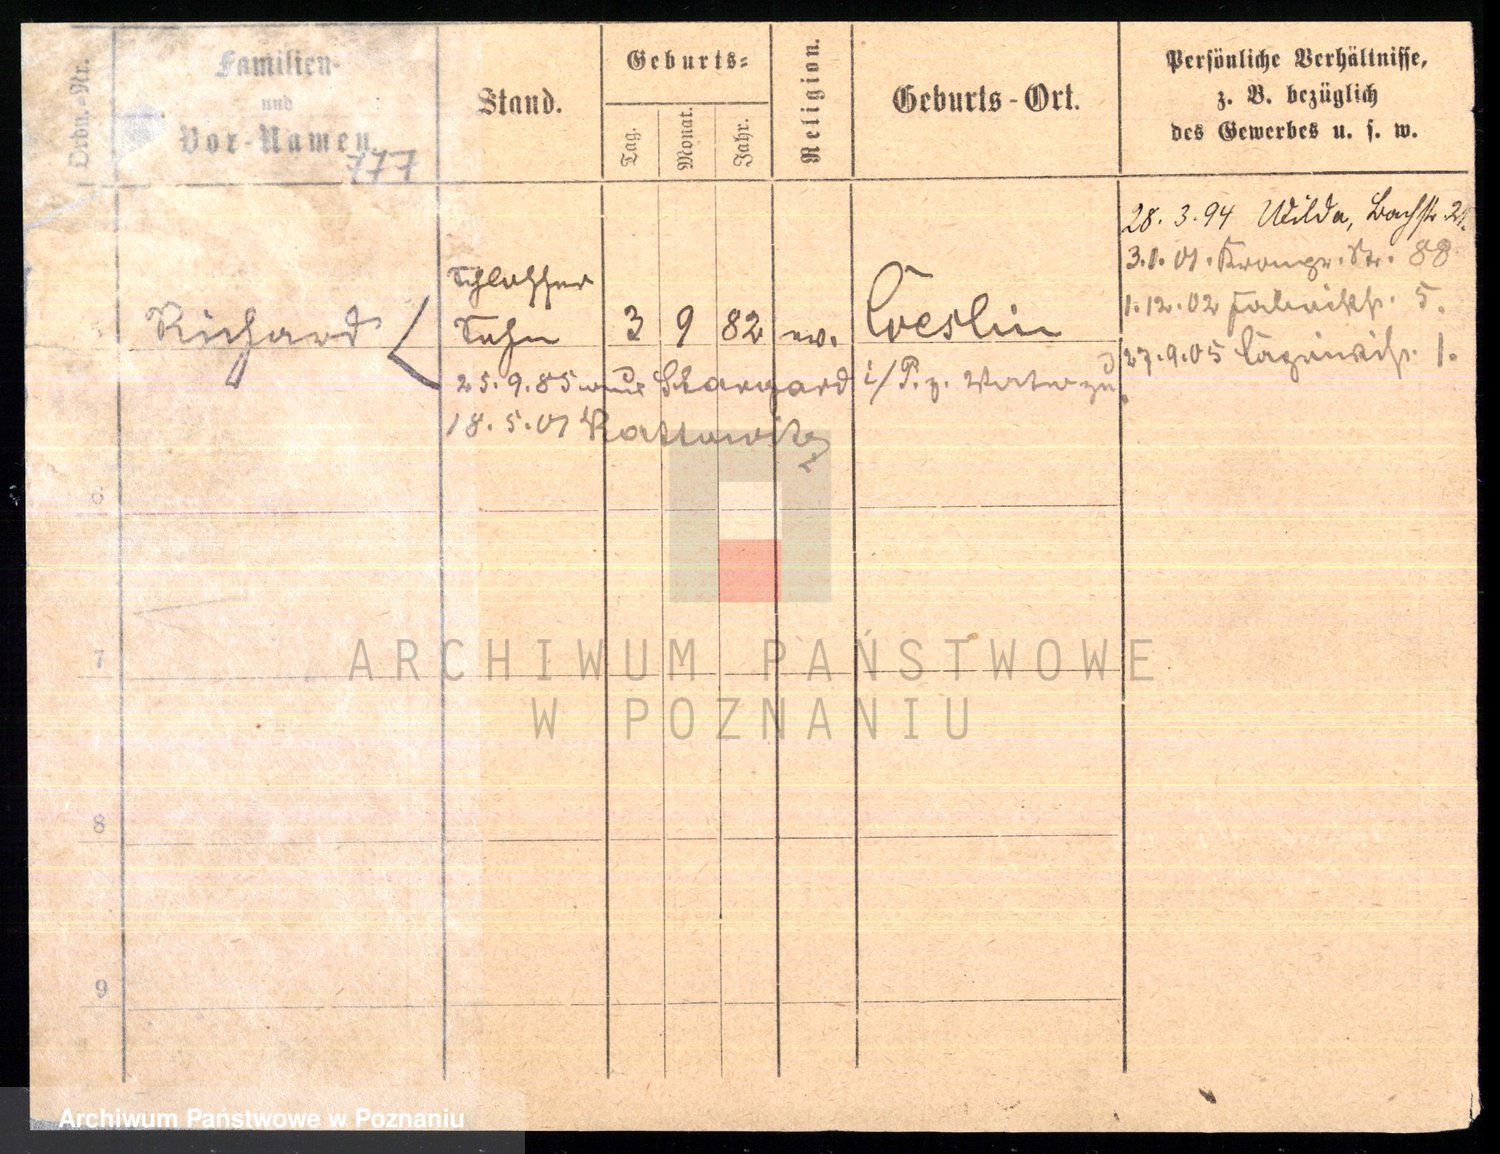 Ordn.-Nr.
Familien-
und
Vor-Namen.
777
Stand.
Geburts-
Tag.
Monat.
Jahr.
Religion.
Geburts-Ort.
Persönliche Verhältnisse,
z. B. bezüglich
des Gewerbes u. s. w.
28. 3. 94 Wilda, Bachstr. 21.
3.1.01. Kronpr. Str. 88
1.12.02 Fabrikstr. 5.
27.9.05 1.
Schlosser
Richard Sohn 3 9 82 ev. Coeslin
25.9.85 aus Stargard i/P. z. Vater zu
18.5.01 Kattowitz
6
7
8
9
ARCHIWUM PAŃSTWOWE
W POZNANIU
Archiwum Państwowe w Poznaniu